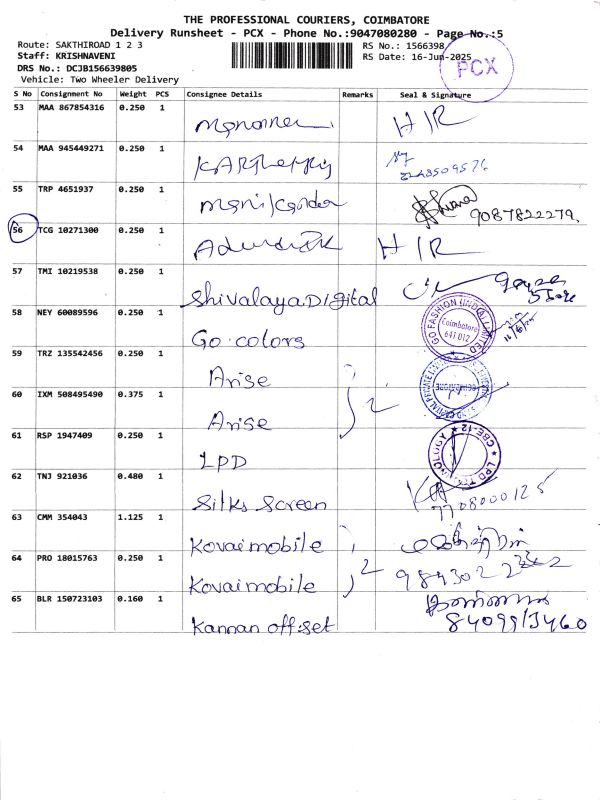 THE PROFESSIONAL COURIERS, COIMBATORE
Delivery Runsheet - PCX - Phone No.:9047080280 - Page No.:5
Route: SAKTHIROAD 1 2 3 RS No.: 1566398
Staff: KRISHNAVENI RS Date: 16-Jun-2025
DRS No.: DCJB156639805
Vehicle: Two Wheeler Delivery
PCX
S No Consignment No Weight PCS Consignee Details Remarks Seal & Signature
53 MAA 867854316 0.250 1 H/R
54 MAA 945449271 0.250 1
55 TRP 4651937 0.250 1 Manikandan 9087822279.
56 TCG 10271300 0.250 1 H/R
57 TMI 10219538 0.250 1 Shivalaya Digital
58 NEY 60089596 0.250 1 Go colors GO FASHION (INDIA) LIMITED Coimbatore 641 012
59 TRZ 135542456 0.250 1 Arise
60 IXM 508495490 0.375 1 Arise 2
61 RSP 1947409 0.250 1 LPD CBE-12
62 TNJ 921036 0.480 1 Silks Screen 7708000125
63 CMM 354043 1.125 1 Kovai mobile
64 PRO 18015763 0.250 1 Kovai mobile 2
65 BLR 150723103 0.160 1 Kannan off:set